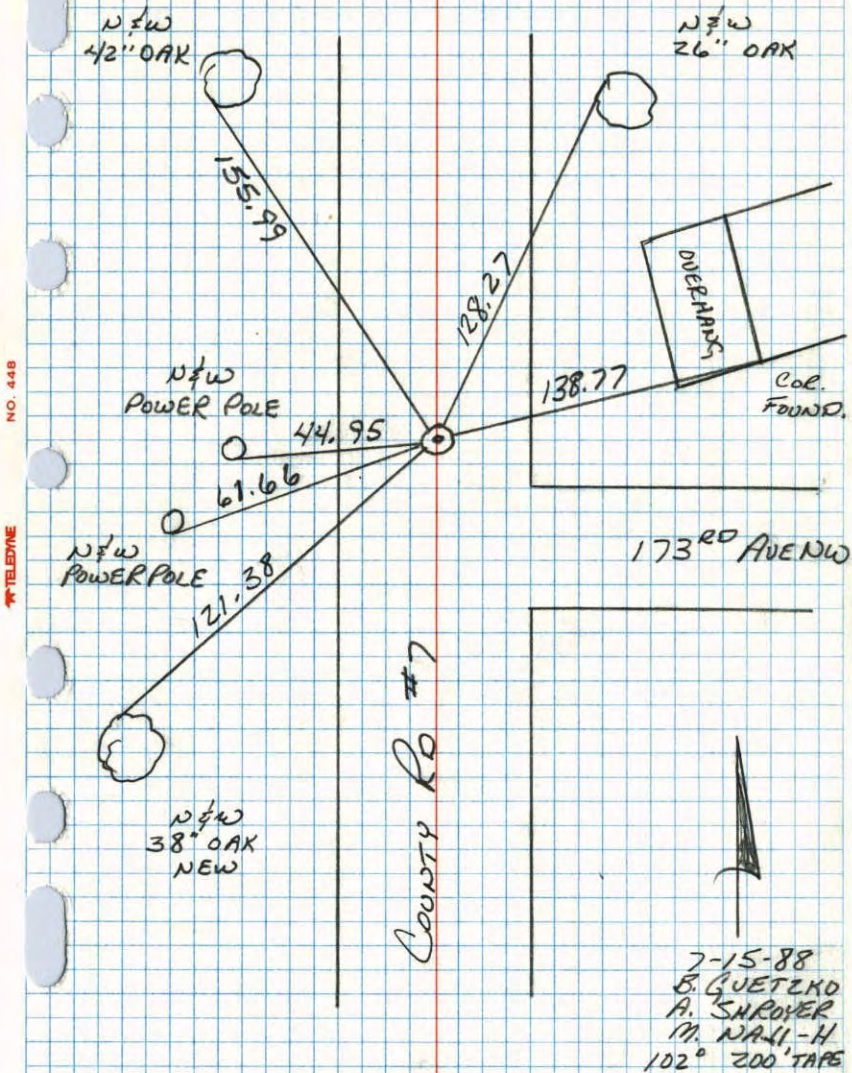 N & W
42" OAK
N & W
26" OAK
155.99
128.27
OVERHANG
138.77
COR.
FOUND.
N & W
POWER POLE
44.95
61.66
N & W
POWER POLE
121.38
173RD AVE NW
N & W
38" OAK
NEW
COUNTY RD #7
7-15-88
B. GUETZKO
A. SHROYER
M.
102° 200' TAPE
NO. 448
TELEDYNE